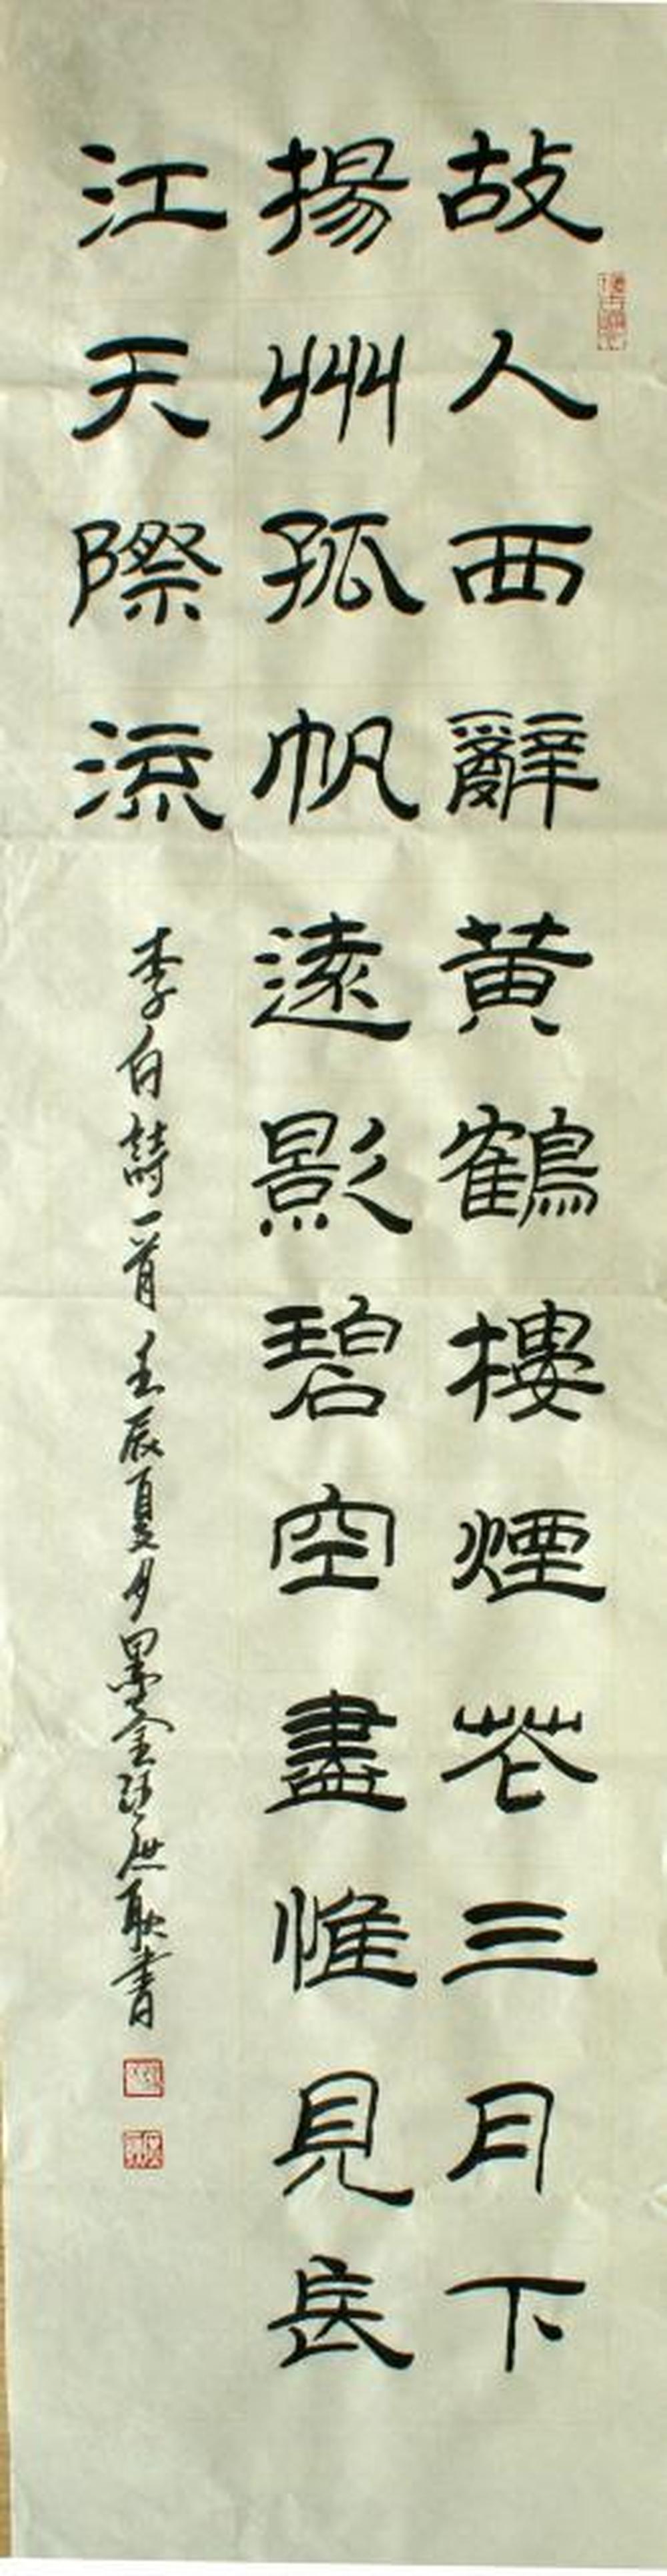 故人西辭黃鶴樓煙花三月下
揚州孤帆遠影碧空盡惟見長
江天際流
李白詩一首壬辰夏月墨金江庶耿書